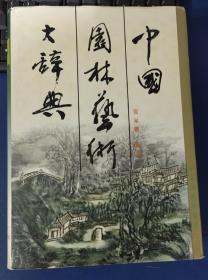 中國
園林藝術
大辭典